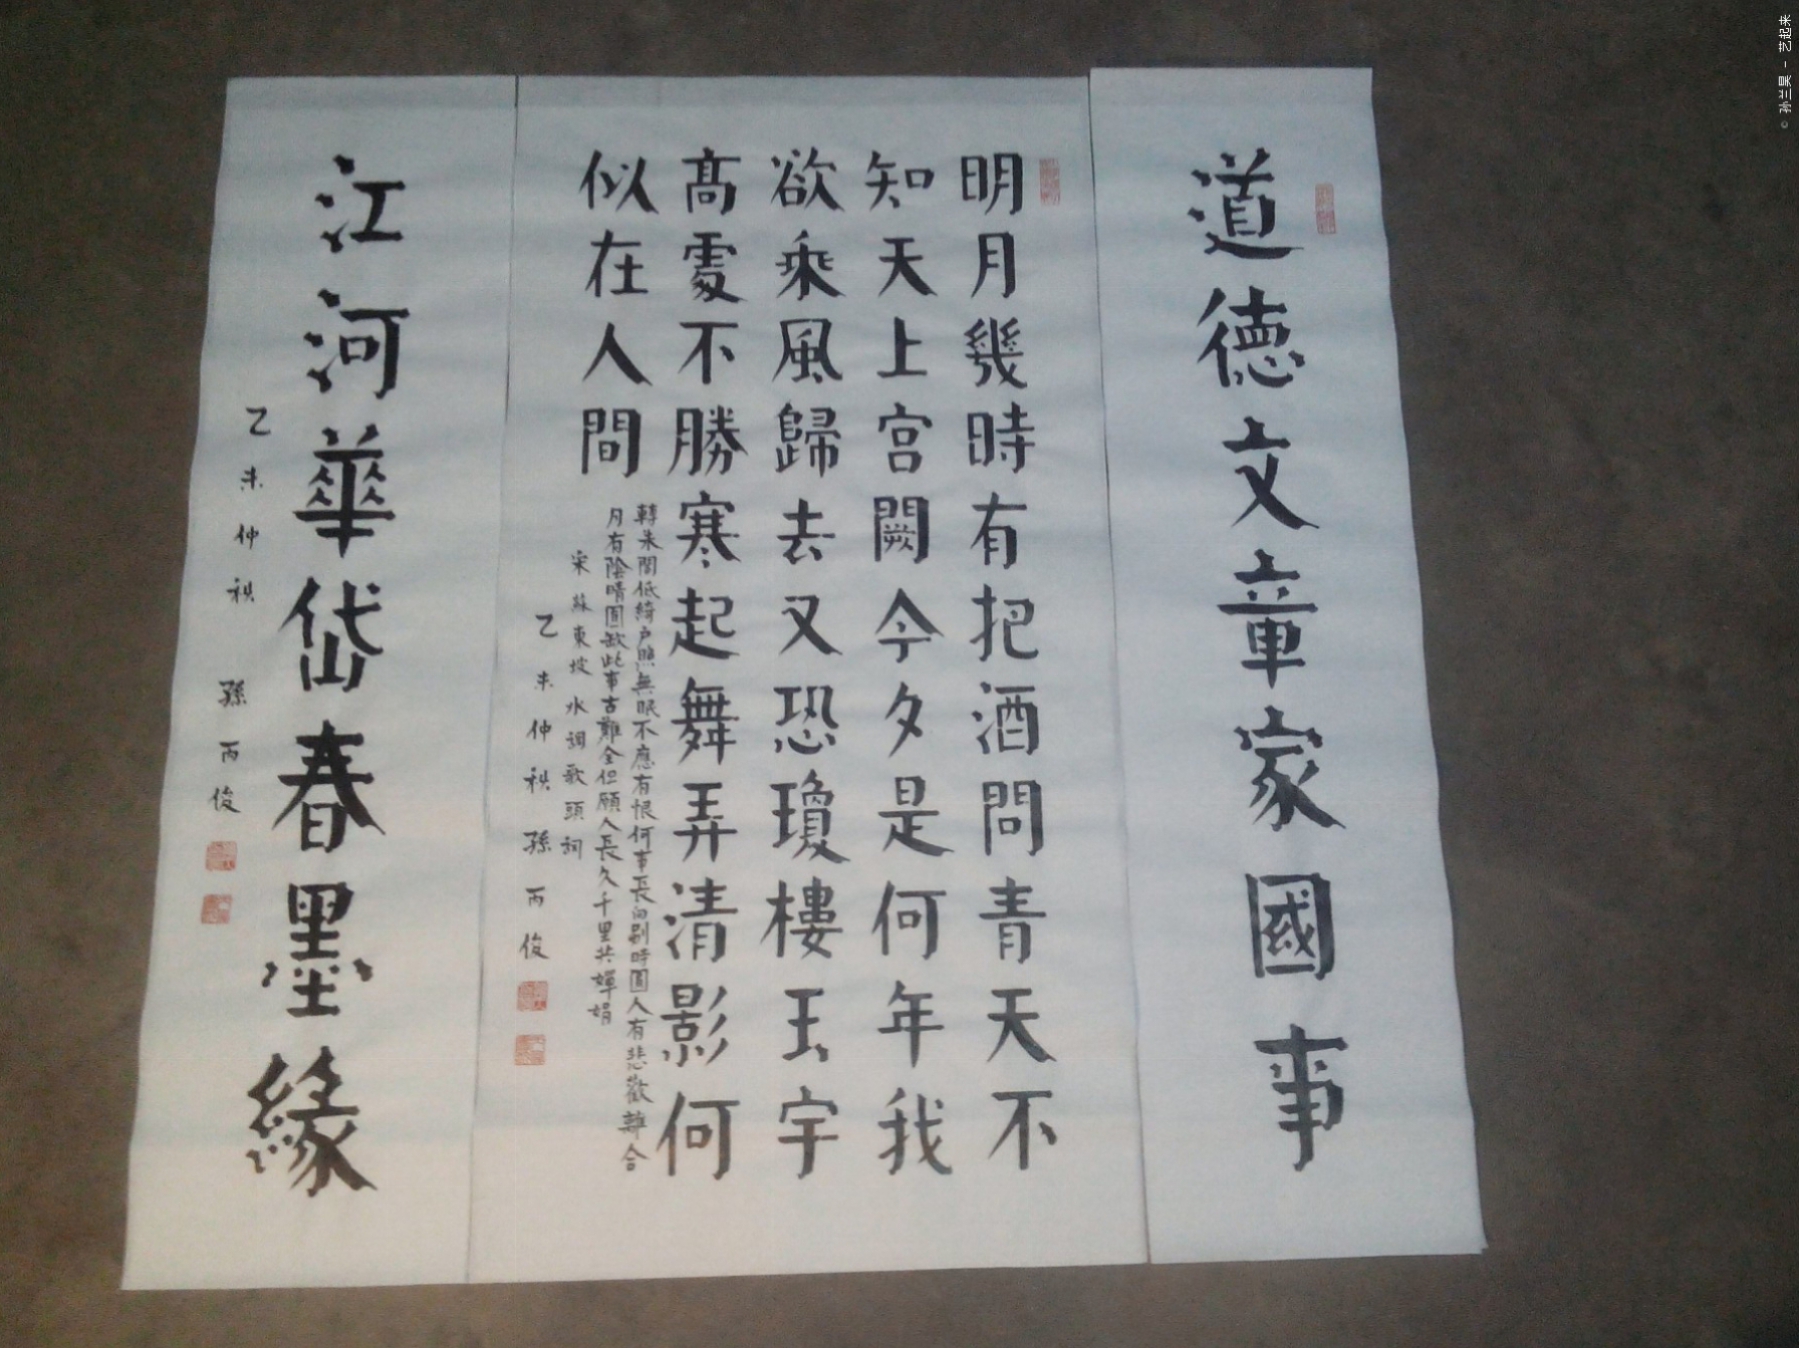 道德文章家國事
明月幾時有把酒問青天不
知天上宮闕今夕是何年我
欲乘風歸去又恐瓊樓玉宇
高處不勝寒起舞弄清影何
似在人間
轉朱閣低綺户照無眠不應有恨何事長向别時圓人有悲歡離合
月有陰晴圓缺此事古難全但願人長久千里共嬋娟
宋蘇東坡水調歌頭詞
乙未仲秋孫丙俊
江河華岱春墨緣
乙未仲秋 孫丙俊
© 孙兰昊 - 艺起来